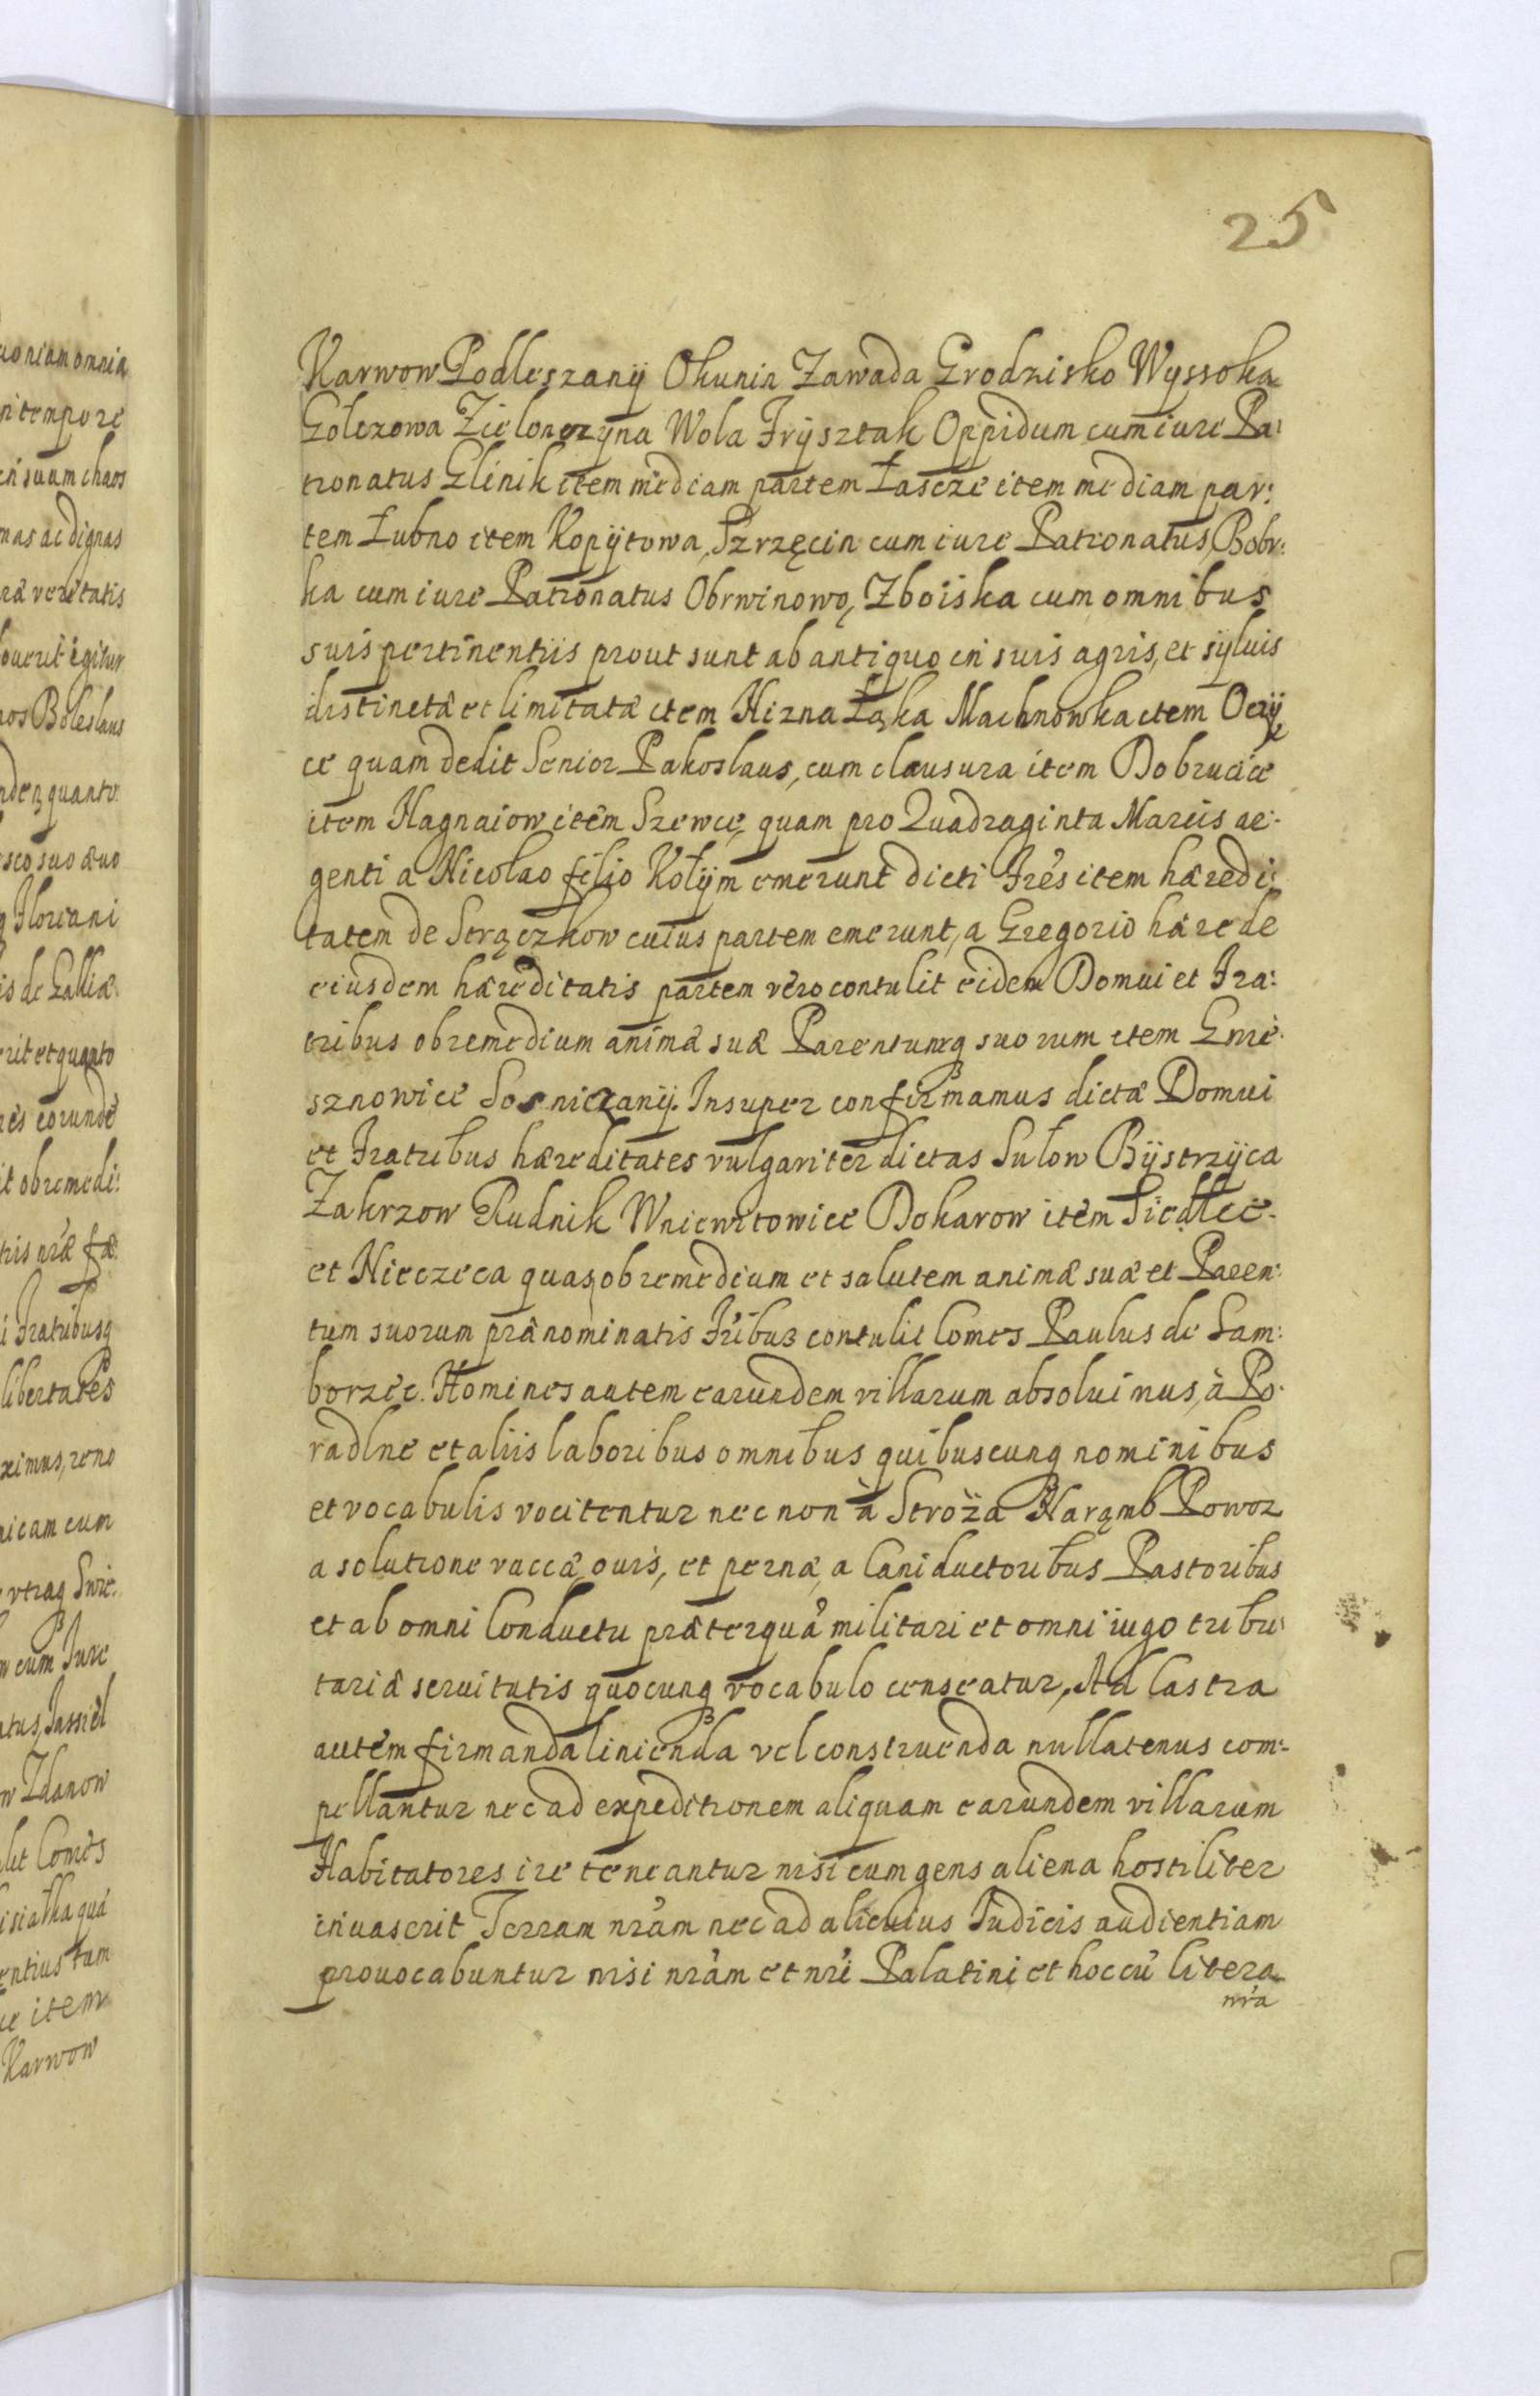 25
Karwow Podleszany Okunin Zawada Grodzisko Wyssoka
Golczowa Zielonczyna Wola Frysztak Oppidum cum iure Pa:
tronatus Glinik item mediam partem Łascze item mediam par:
tem Łubno item Kopytowa, Szrzęcin cum iure Patronatus, Bobr:
ka cum iure Patronatus Obrwinowo, Zboiska cum omnibus
suis pertinentiis prout sunt ab antiquo in suis agris, et syluis
distinctæ et limitatæ item Nizna Łąka Machnowka item
ce quam dedit Senior Pakoslaus, cum clausura item Dobrucice
item Nagnaiow item Szewce, quam pro Quadraginta Marcis ar:
genti a Nicolao filio Kołym emerunt dicti Frẽs item hæredi:
tatem de Strączkow cuius partem emerunt, a Gregorio hærede
eiusdem hæreditatis partem vero contulit eidem Domui et Fra:
tribus ob remedium animæ suæ Parentumq suorum item Gnie:
sznowice Sosniczany. Insuper confirmamus dictæ Domui
et Fratribus hæreditates vulgariter dictas Sułow Bystrzyca
Zakrzow Rudnik Wniewitowice Bokarow item Siedlce
et Nieczeca quas ob remedium et salutem animæ suæ et Paren:
tum suorum prænominatis Fribus contulit Comes Paulus de Sam:
borzec. Homines autem earundem villarum absoluimus, à Po:
radlne et aliis laboribus omnibus quibuscunq nominibus
et vocabulis vocitentur nec non à Stroża Narąmb Powoz
a solutione vaccæ, ouis, et pernæ, a Caniductoribus Pastoribus
et ab omni Conductu præterquã militari et omni iugo tribu:
tariæ seruitutis quocunq vocabulo censeatur, Ad Castra
autem firmanda linienda vel construenda nullatenus com:
pellantur nec ad expeditionem aliquam earundem villarum
Habitatores ire teneantur nisi cum gens aliena hostiliter
inuaserit Terram nrãm nec ad alicuius Iudicis audientiam
prouocabuntur nisi nrãm et nrĩ Palatini et hoc cũ litera
nrã